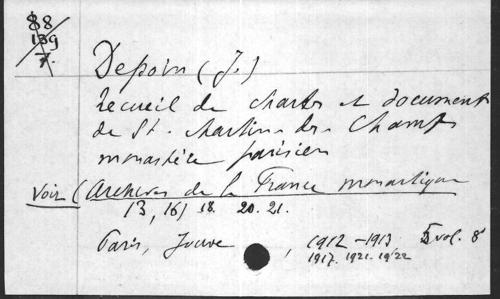 88
139
7.
Depoin (J.)
Recueil de chartes et documents
de St. Martin des Champs
monastère parisien
Voir (Archives de la France monastique
13, 16, 18. 20. 21.
Paris, Jouve, 1912-1913 5 vol. 8°
1917. 1921. 1922